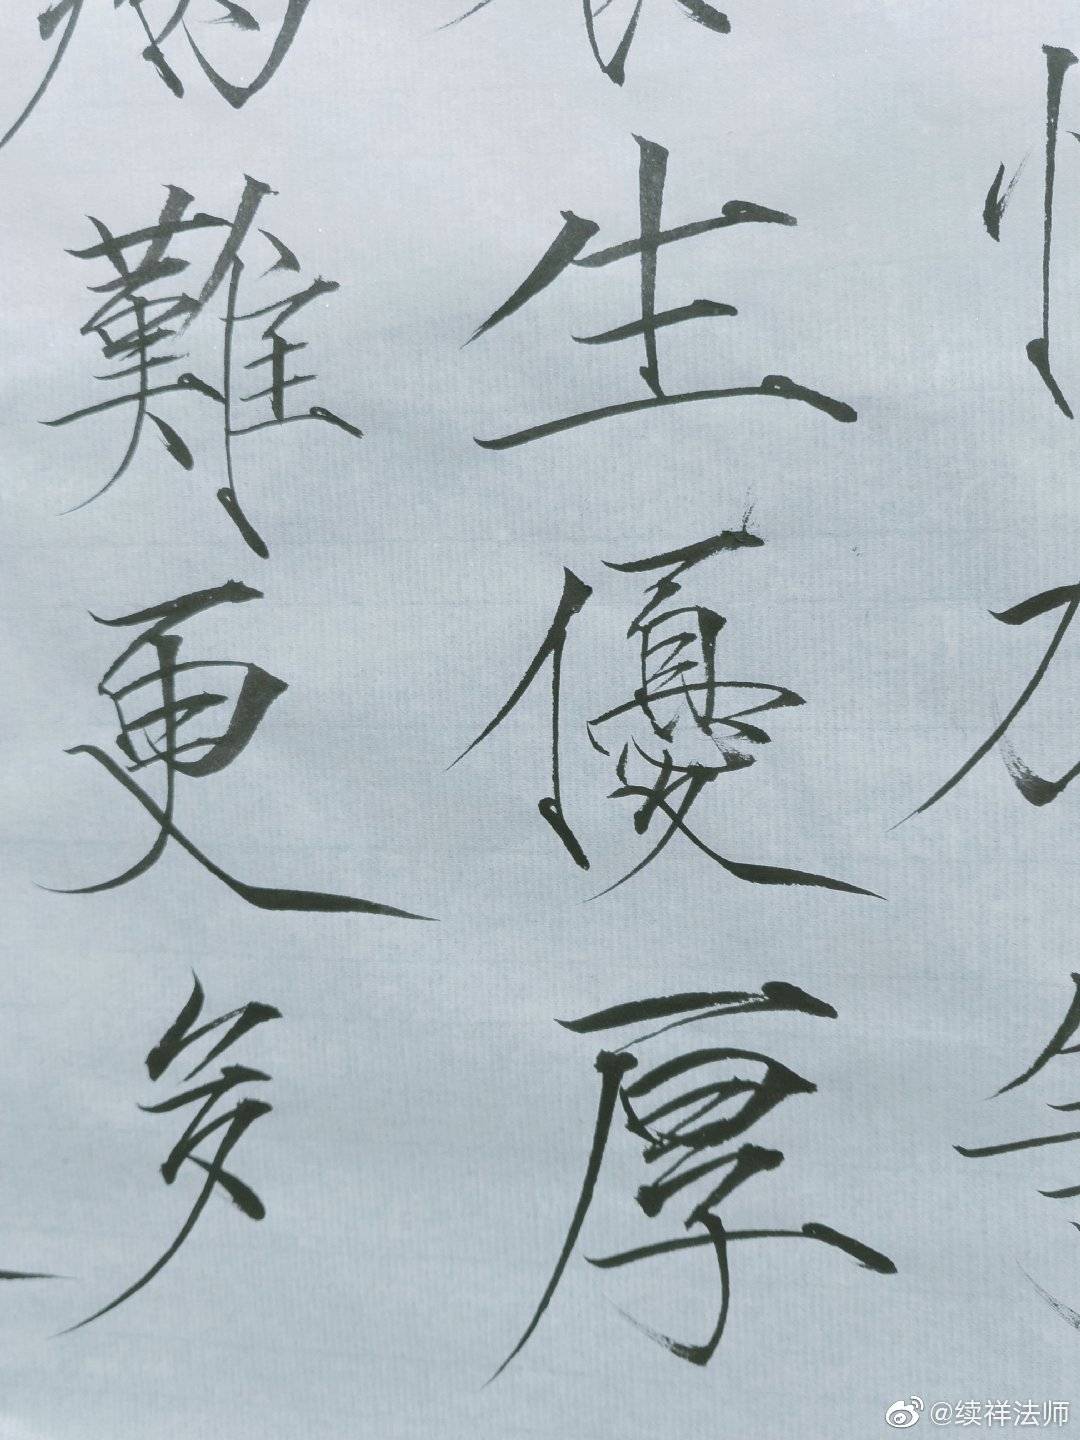 生優厚
難更多
@续祥法师